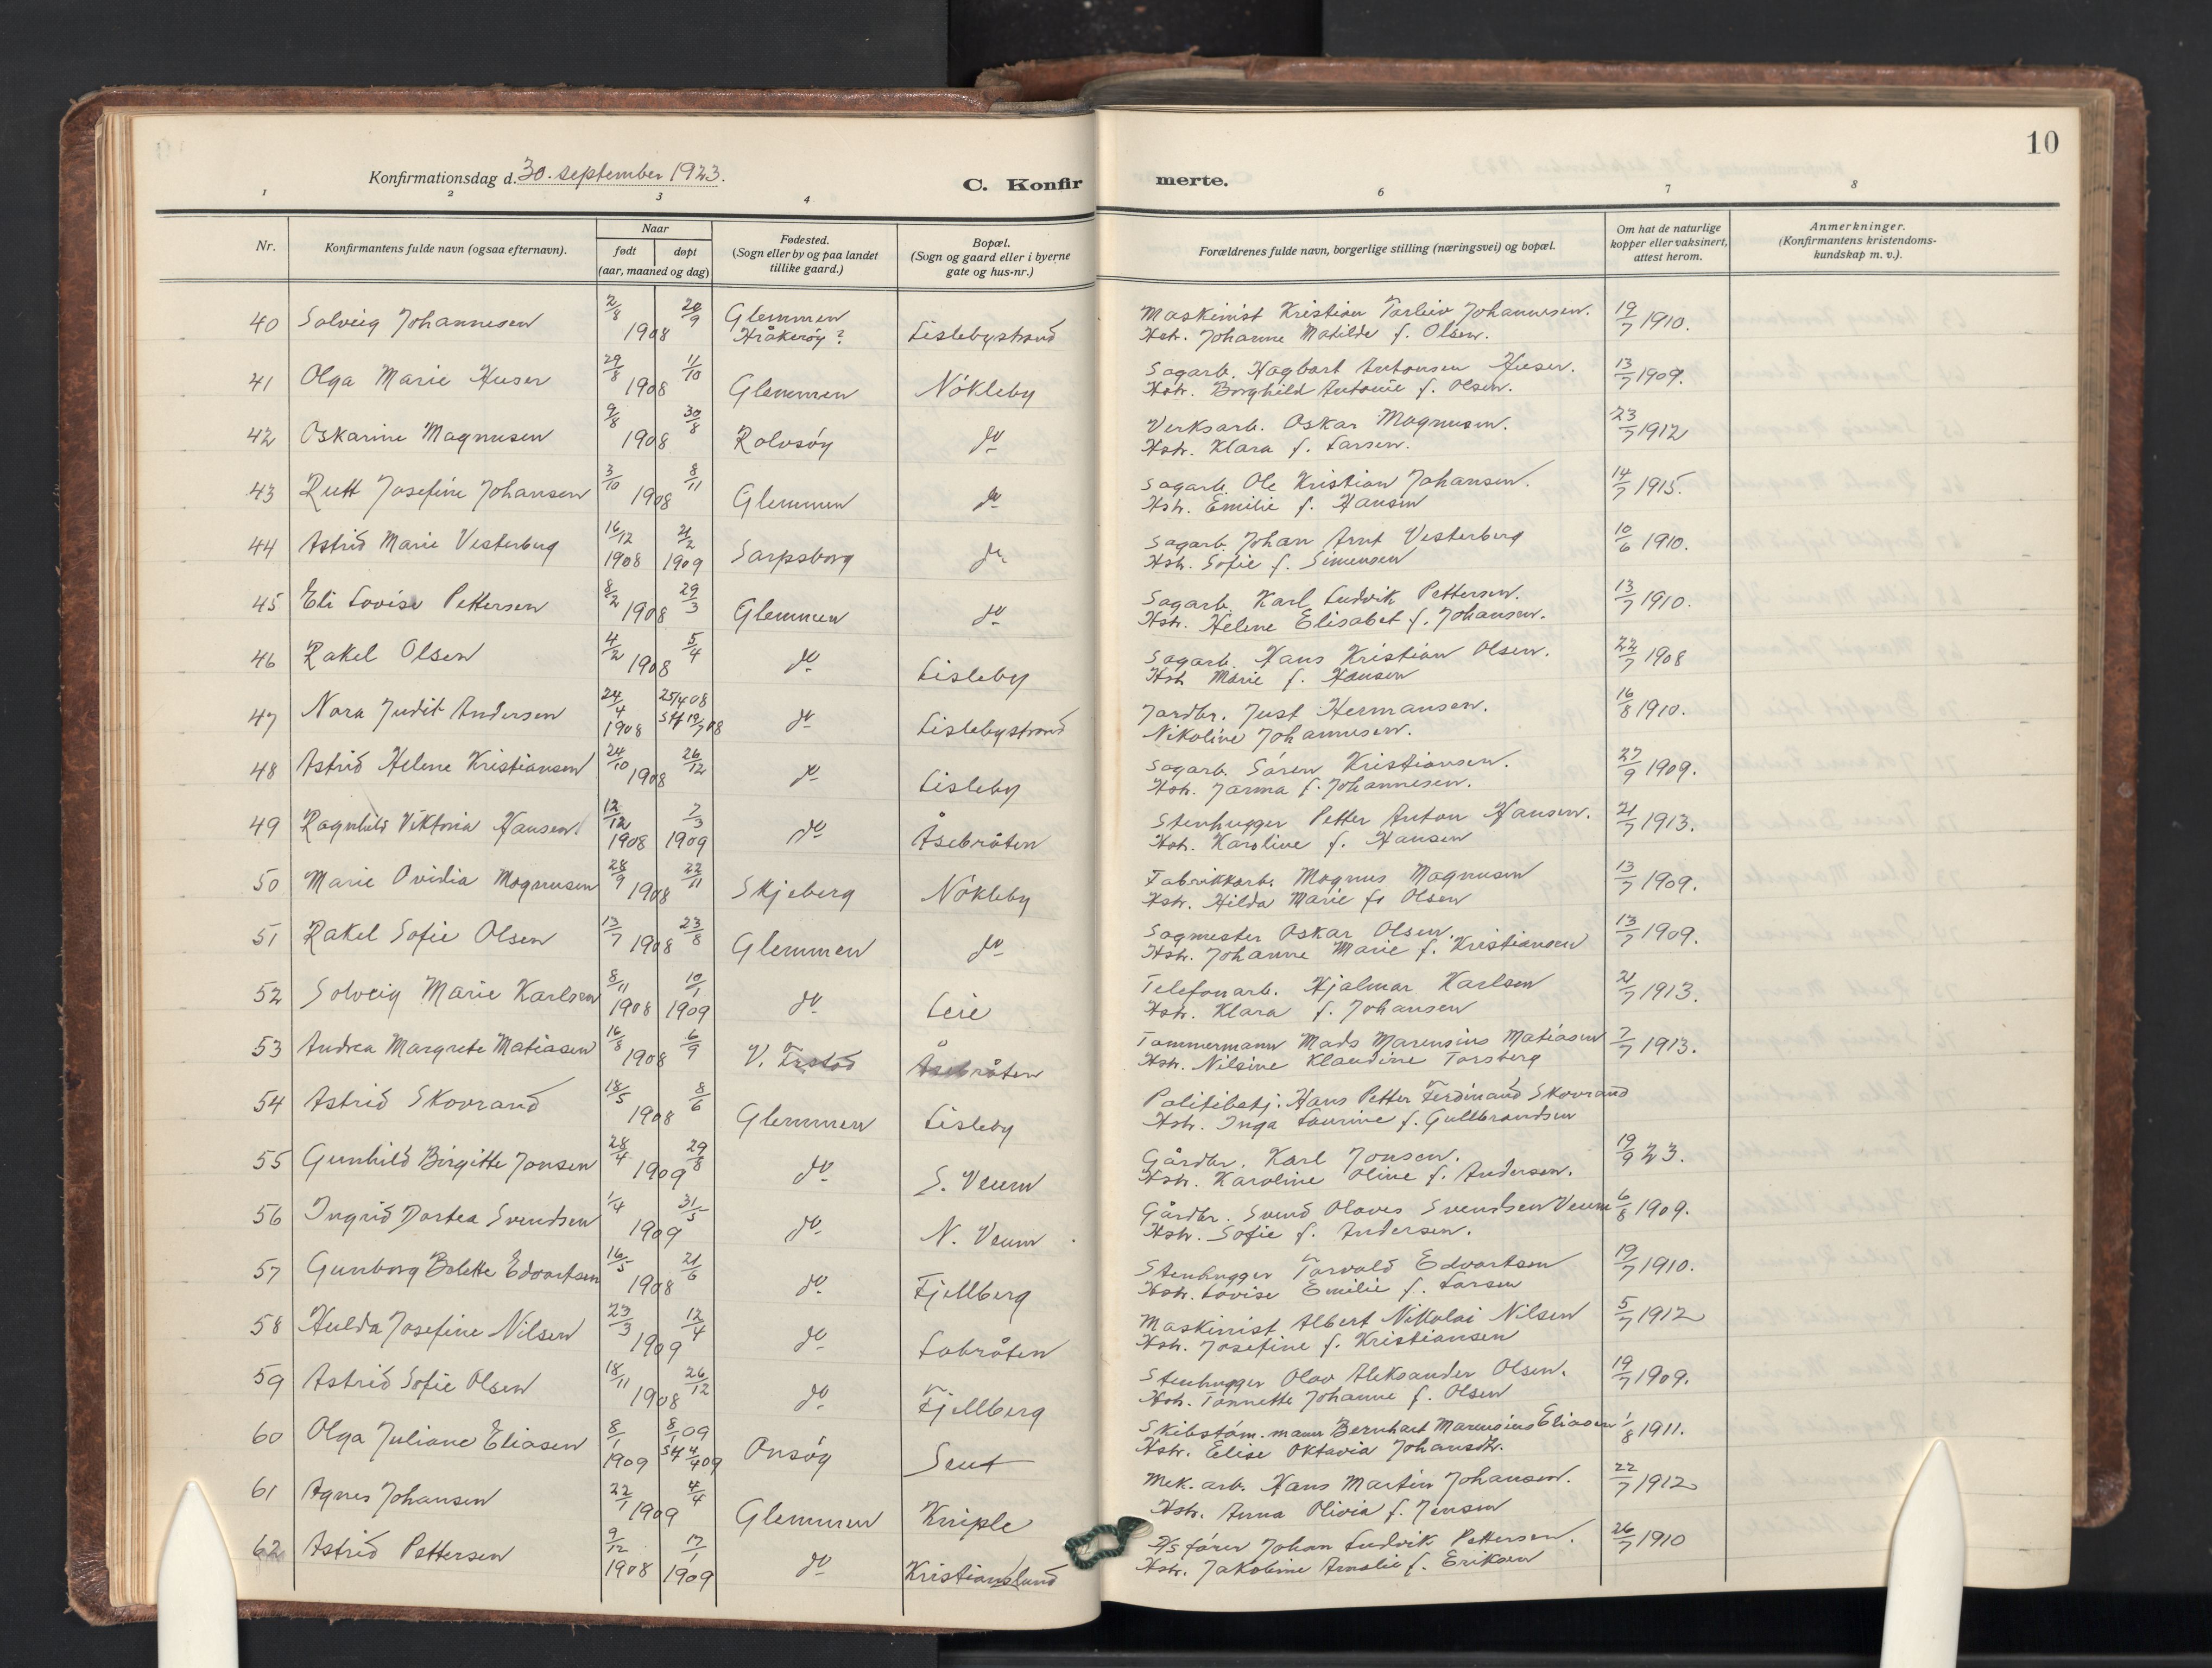 10
Konfirmationsdag d. 30. september 1923.
C. Konfir
merte.
1 2 3 4 6 7 8
Nr.
Konfirmantens fulde navn (ogsaa efternavn).
Naar
født døpt
(aar, maaned og dag)
Fødested.
(Sogn eller by og paa landet
tillike gaard.)
Bopæl.
(Sogn og gaard eller i byerne
gate og hus-nr.)
Forældrenes fulde navn, borgerlige stilling (næringsvei) og bopæl.
Om hat de naturlige
kopper eller vaksinert,
attest herom.
Anmerkninger.
(Konfirmantens kristendoms-
kundskap m. v.).
40 Solveig Johannesen 2/8 20/9 1908 Glemmen
Kråkerøy? Lislebystrand
Maskinist Kristian Torleiv Johannesen. 19/7 1910.
Hstr. Johanne Matilde f. Olsen.
41 Olga Marie Huser 29/8 11/10 1908 Glemmen Nökleby
Sagarb. Hagbart Antonsen Huser. 13/7 1909.
Hstr. Borghild Antonie f. Olsen.
42 Oskarine Magnusen 9/8 30/8 1908 Rolvsöy do
Verksarb. Oskar Magnusen. 23/7 1912
Hstr. Klara f. Larsen.
43 Rutt Josefine Johansen 3/10 8/11 1908 Glemmen do
Sagarb. Ole Kristian Johansen. 14/7 1915.
Hstr. Emilie f. Hansen
44 Astrid Marie Vesterberg 16/12 1908 21/2 1909 Sarpsborg do
Sagarb. Johan Arnt Vesterberg 10/6 1910.
Hstr. Sofie f. Simensen
45 Eli Lovise Pettersen 8/2 29/3 1908 Glemmen do
Sagarb. Karl Ludvik Pettersen. 13/7 1910.
Hstr. Helene Elisabet f. Johansen.
46 Rakel Olsen 4/2 5/4 1908 do Lisleby
Sagarb. Hans Kristian Olsen. 22/7 1908
Hstr Marie f. Hansen
47 Nora Judit Andersen 24/4 1908 25/4 08 Stf 19/7 08 do Lislebystrand
Jordbr. Just Hermansen. 16/8 1910.
Nikoline Johannesen.
48 Astrid Helene Kristiansen 24/10 26/12 1908 do Lisleby
Sagarb. Sören Kristiansen. 27/9 1909.
Hstr. Jarma f. Johannesen.
49 Ragnhild Viktoria Hansen 12/12 1908 7/3 1909 do Åsebråten
Stenhugger Petter Anton Hansen. 21/7 1913.
Hstr. Karoline f. Hansen
50 Marie Ovidia Magnusen 28/9 22/11 1908 Skjeberg Nökleby
Fabrikkarb. Magnus Magnusen 13/7 1909.
Hstr. Hilda Marie f. Olsen
51 Rakel Sofie Olsen 13/7 23/8 1908 Glemmen do
Sagmester Oskar Olsen. 13/7 1909.
Hstr. Johanne Marie f. Kristiansen
52 Solveig Marie Karlsen 8/11 1908 10/1 1909 do Leie
Telefonarb. Hjalmar Karlsen 21/7 1913.
Hstr. Klara f. Johansen
53 Andrea Margrete Matiasen 16/8 6/9 1908 V. Åsebråten
Tømmermann Mads Marensius Matiasen 7/7 1913.
Hstr. Nilsine Klaudine Torsberg
54 Astrid Skovrand 18/5 8/6 1908 Glemmen Lisleby
Politibetj. Hans Petter Ferdinand Skovrand
Hstr. Inga Laurine f. Gullbrandsen
55 Gunhild Birgitte Jonsen 28/4 29/8 1909 do S. Veum
Gårdbr. Karl Jonsen. 19/9 23.
Hstr. Karoline Oline f. Andersen.
56 Ingrid Dortea Svendsen 1/4 31/5 1909 do N. Veum
Gårdbr. Svend Olaves Svendsen Veum 6/8 1909.
Hstr. Sofie f. Andersen.
57 Gunborg Bolette Edvartsen 16/5 21/6 1908 do Fjellberg
Stenhugger Torvald Edvartsen 19/7 1910.
Hstr. Lovise Emilie f. Larsen
58 Hulda Josefine Nilsen 23/3 12/4 1909 do Labråten
Maskinist Albert Nikolai Nilsen 5/7 1912
Hstr. Josefine f. Kristiansen
59 Astrid Sofie Olsen 18/11 26/12 1908 do Fjellberg
Stenhugger Olav Aleksander Olsen. 19/7 1909.
Hstr. Tonnette Johanne f. Olsen
60 Olga Juliane Eliasen 8/1 1909 8/1 09 Stf 4/4 09 Onsöy Saut
Skibstöm.mann Bernhart Marensius Eliasen 1/8 1911.
Hstr. Elise Oktavia Johansdtr.
61 Agnes Johansen 22/1 4/4 1909 Glemmen Kniple
Mek. arb. Hans Martin Johansen. 22/7 1912
Hstr. Anna Olivia f. Jensen
62 Astrid Pettersen 9/12 1908 17/1 1909 do Kristianslund
D/s förer Johan Ludvik Pettersen. 26/7 1910
Hstr. Jakobine Amalie f. Eriksen